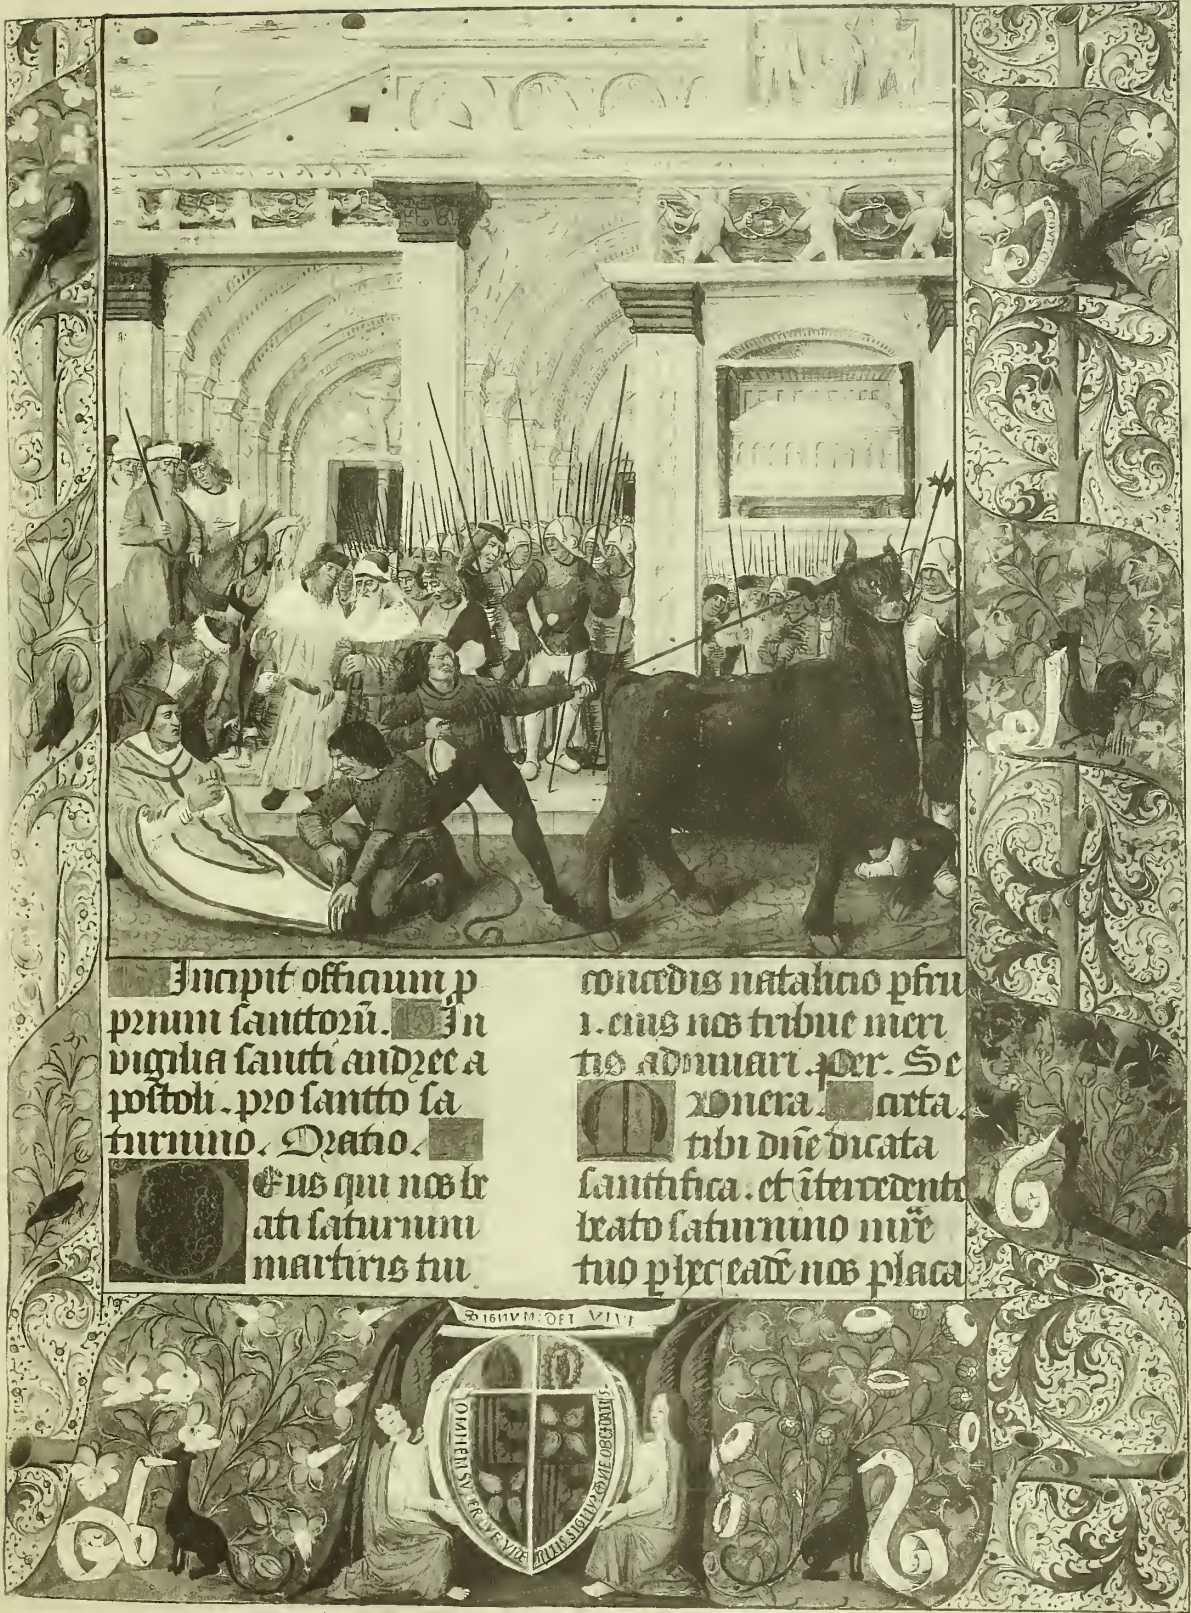 Incipit officium p
prium sanctorū. In
vigilia sancti andree a
postoli. pro sancto sa
turnino. Oratio.
Deus qui nos be
ati saturnini
martiris tui
concedis natalicio pfru
i. eius nos tribue meri
tis adiuuari. per. Se
Munera creta.
tibi dñe dicata
sanctifica. et ītercedente
beato saturnino mr̄e
tuo p hec eadē nos placa
SIGNVM: DEI VIVI